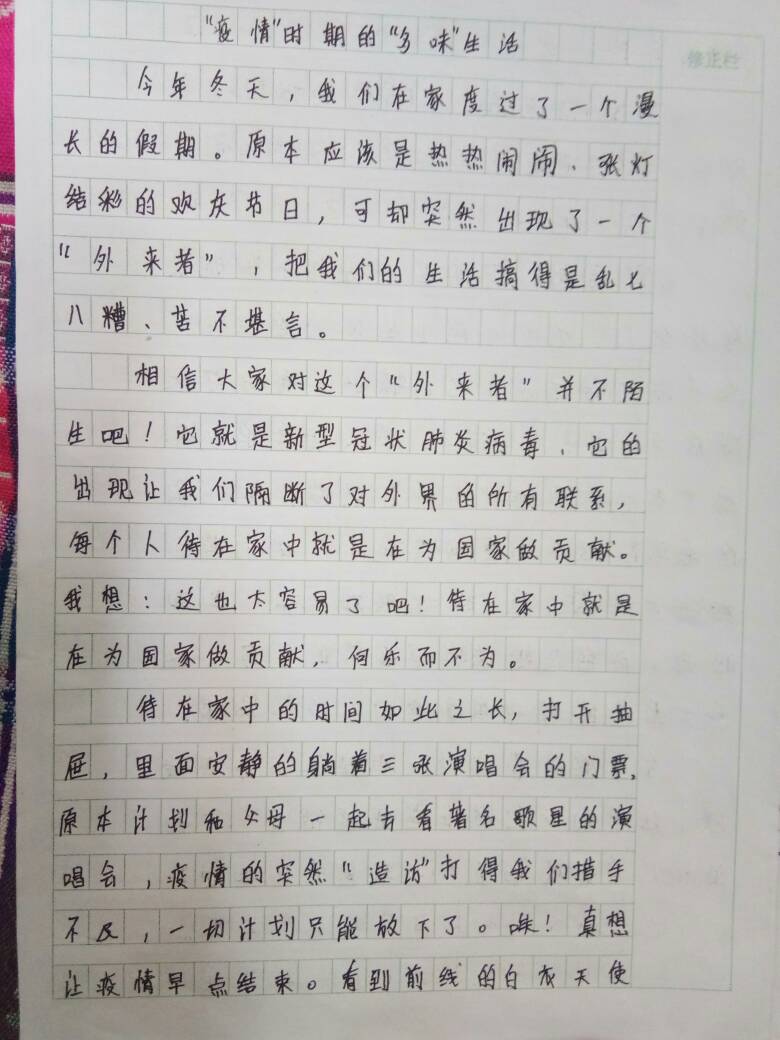 “疫情”时期的“多味”生活
今年冬天，我们在家度过了一个漫
长的假期。原本应该是热热闹闹、张灯
结彩的欢庆节日，可却突然出现了一个
“外来者”，把我们的生活搞得是乱七
八糟、苦不堪言。
相信大家对这个“外来者”并不陌
生吧！它就是新型冠状肺炎病毒，它的
出现让我们隔断了对外界的所有联系，
每个人待在家中就是在为国家做贡献。
我想：这也太容易了吧！待在家中就是
在为国家做贡献，何乐而不为。
待在家中的时间如此之长，打开抽
屉，里面安静的躺着三张演唱会的门票，
原本计划和父母一起去看著名歌星的演
唱会，疫情的突然“造访”打得我们措手
不及，一切计划只能放下了。唉！真想
让疫情早点结束。看到前线的白衣天使
修正栏